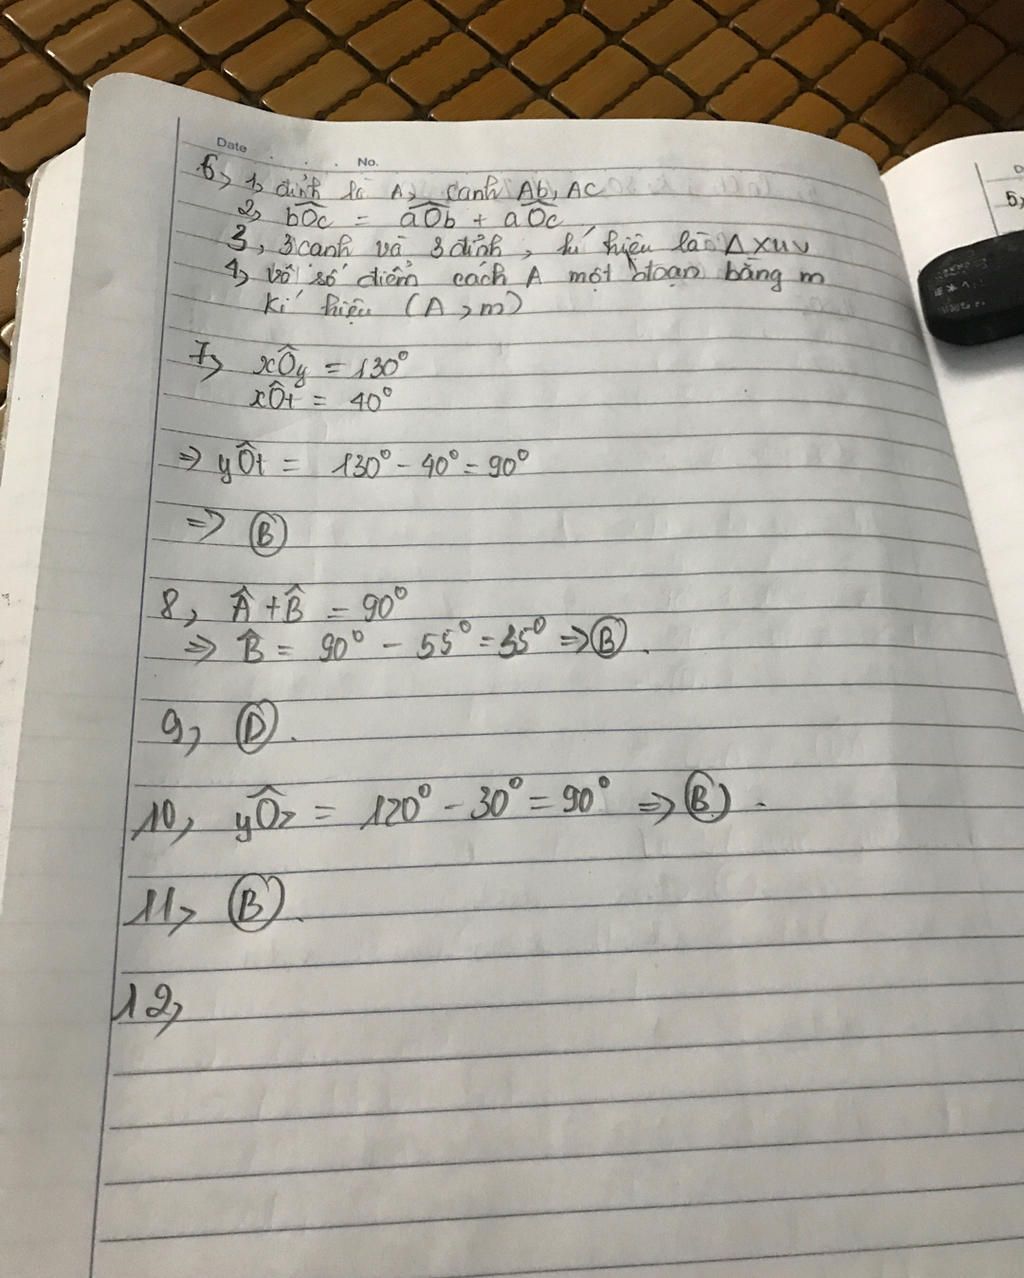 Date . . . No.
6, 1, đỉnh là A, cạnh Ab, AC
2, bÔc = aÔb + aÔc
3, 3 cạnh và 3 đỉnh, kí hiệu là Δ xuv
4, vô số điểm cách A một đoạn bằng m
Kí hiệu (A, m)
7, xÔy = 130°
xÔt = 40°
=> yÔt = 130° - 40° = 90°
=> B
8, Â + B̂ = 90°
=> B̂ = 90° - 55° = 35° => B.
9, D.
10, yÔz = 120° - 30° = 90° => B.
11, B.
12,
5,